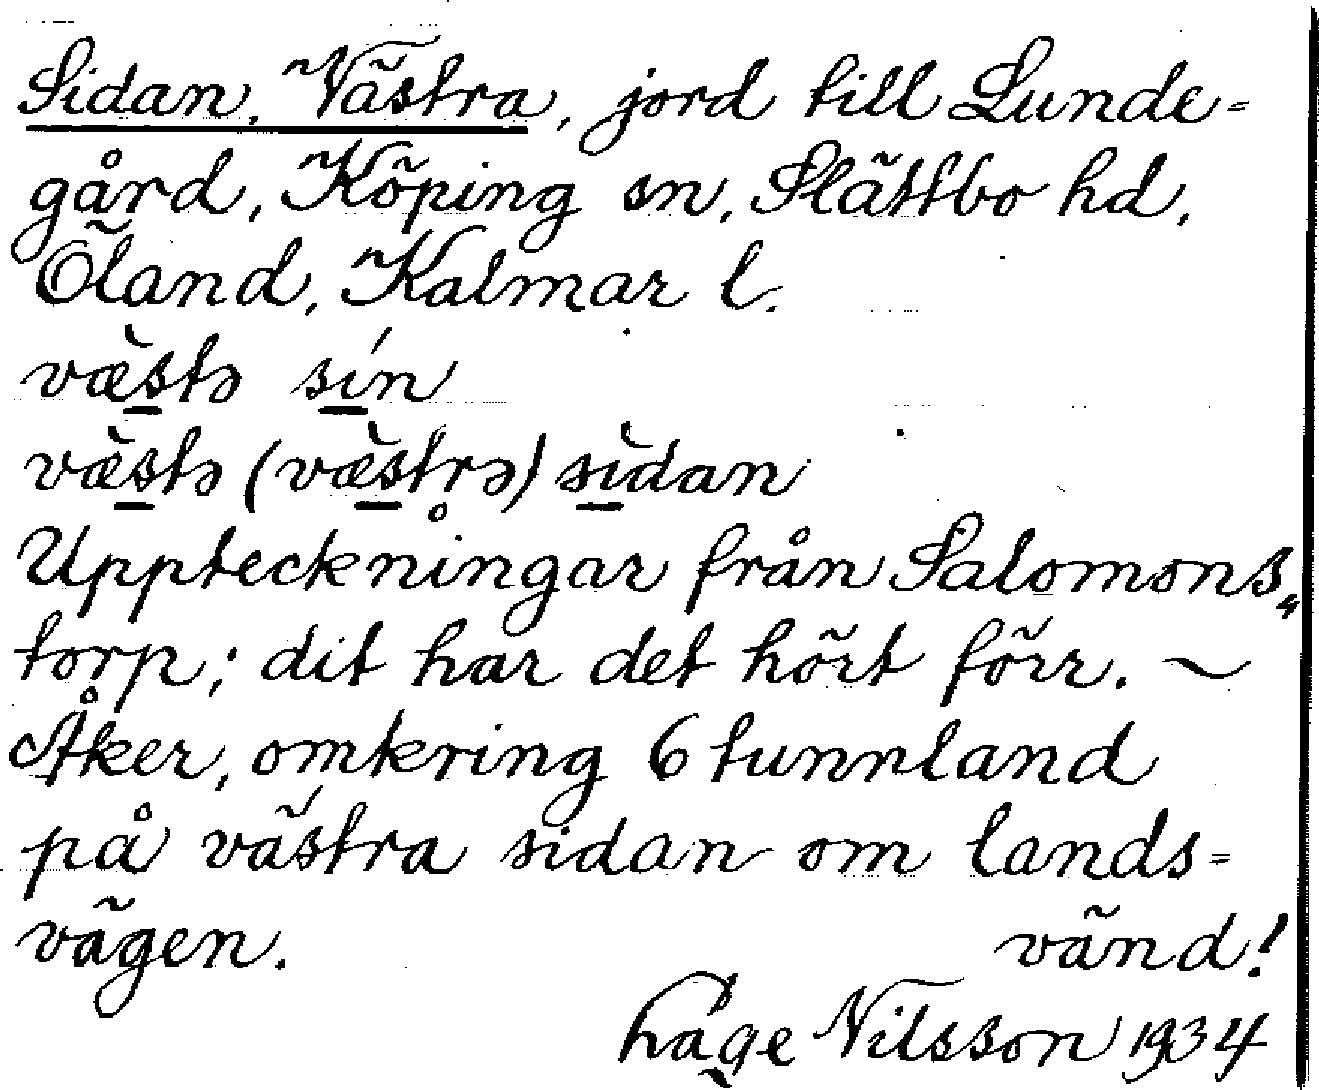 Sidan, Västra, jord till Lunde-
gård, Köping sn, Slättbo hd,
Öland, Kalmar l.
væ̀stə sín
væ̀stə (væ̀strə) sìdan
Uppteckningar från Salomons„
torp; dit har det hört förr. ~
Åker, omkring 6 tunnland
på västra sidan om lands-
vägen.
vänd!
Nilsson 1934